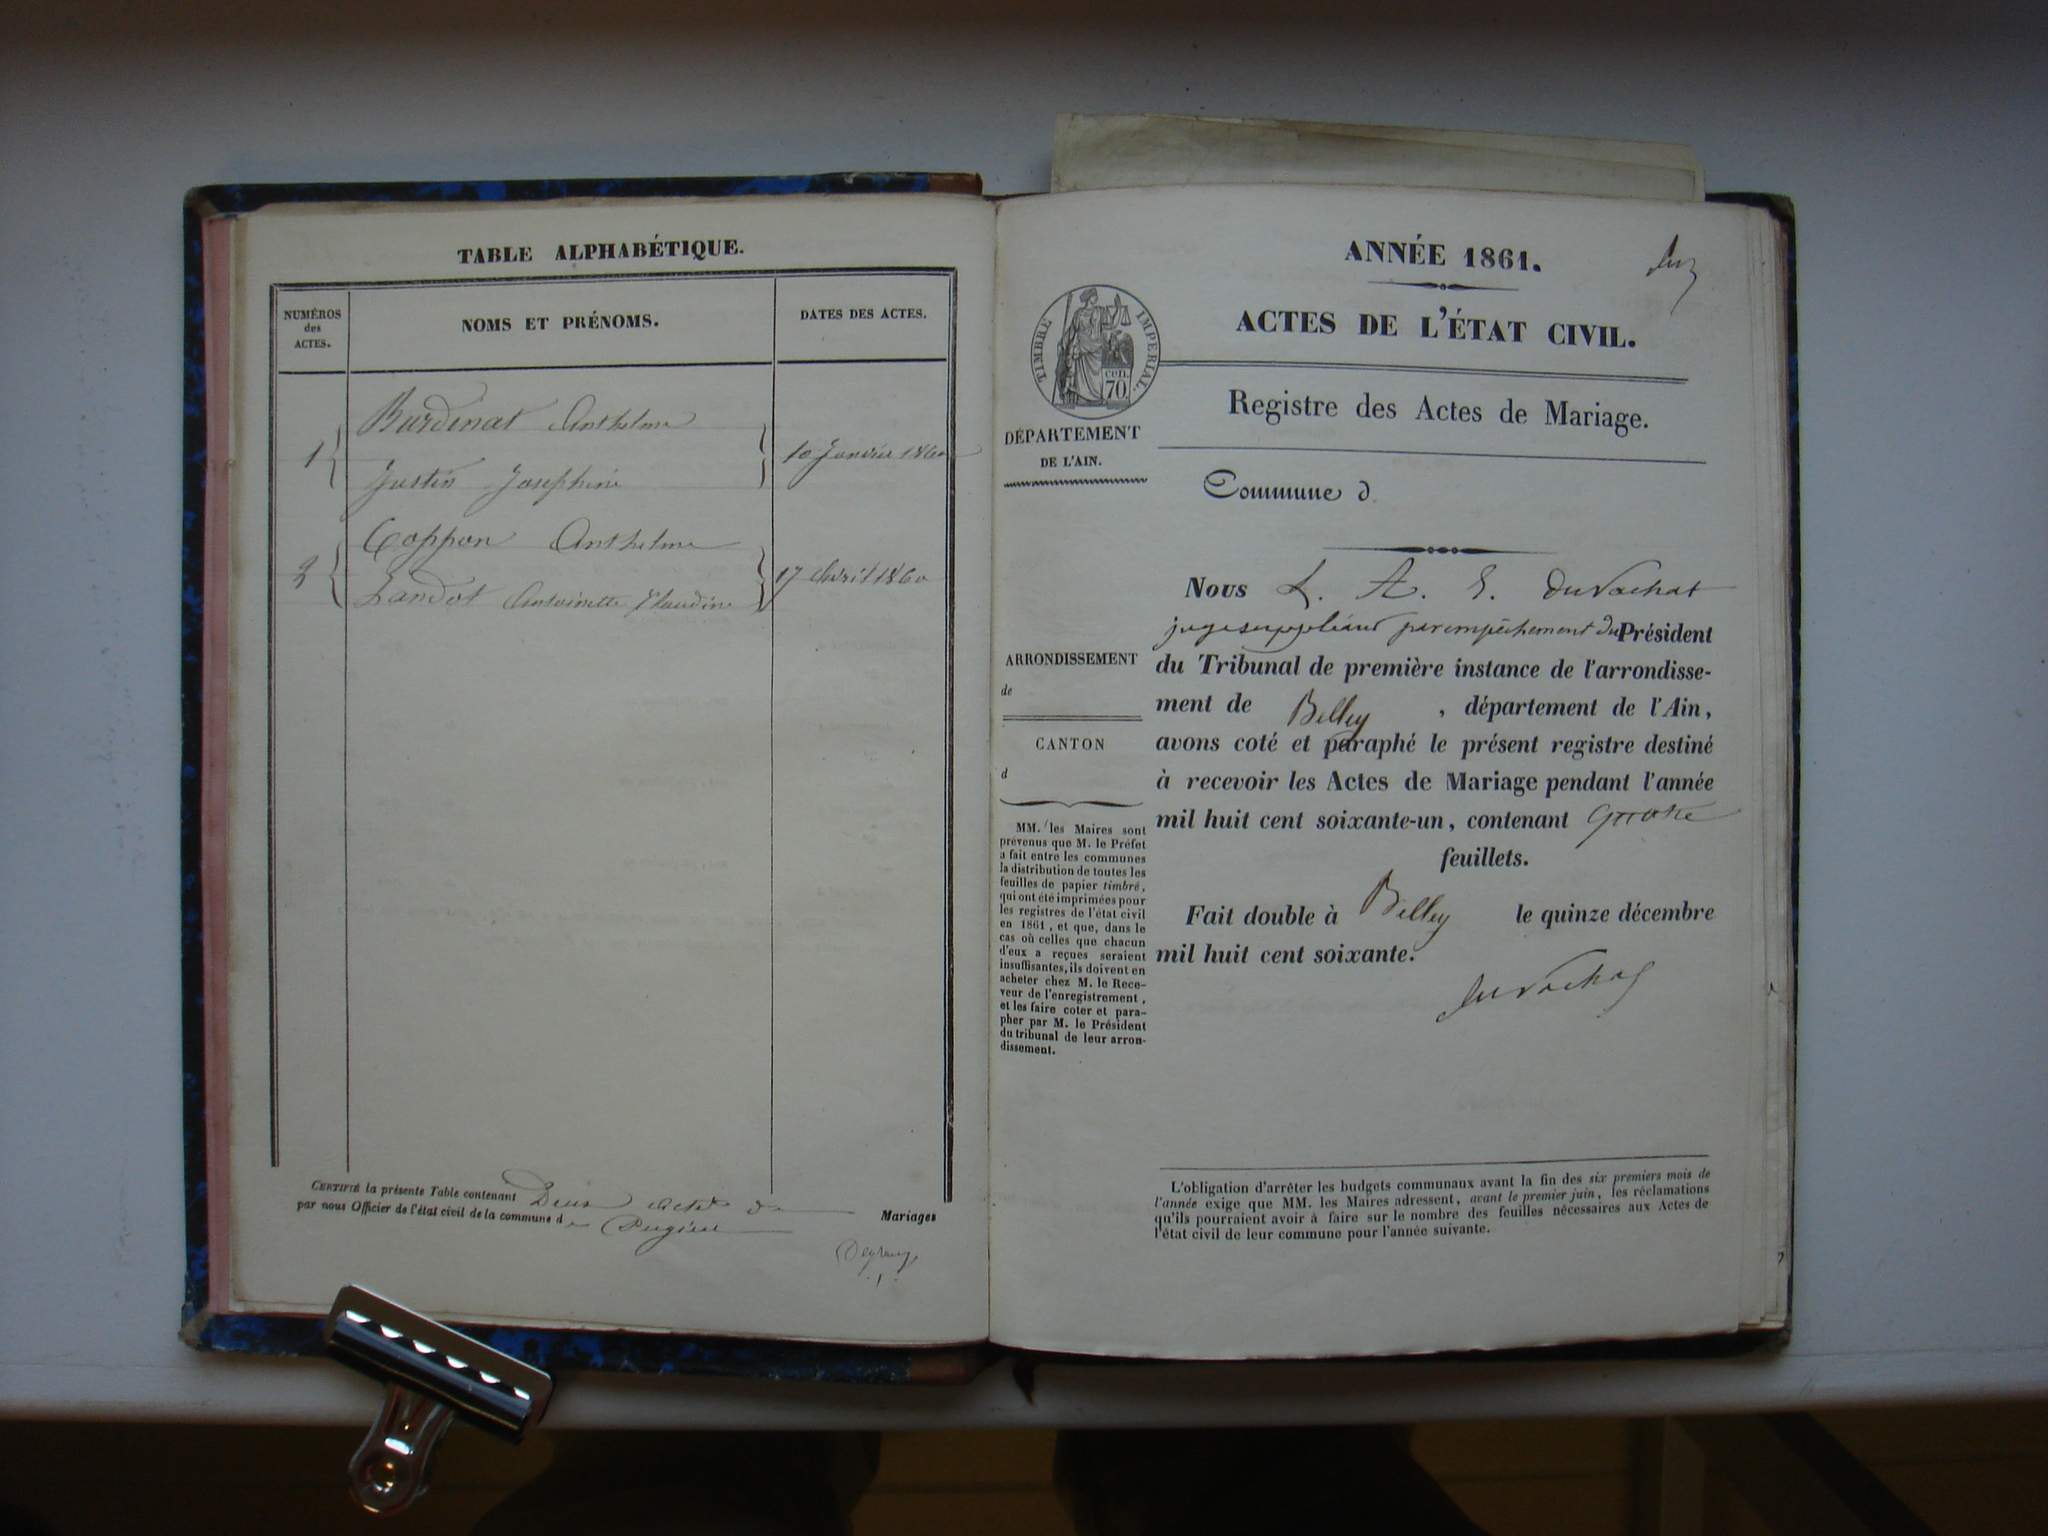 TABLE ALPHABÉTIQUE.
NUMÉROS
des
ACTES.
NOMS ET PRÉNOMS.
DATES DES ACTES.
1
Burdinat Anthelme
Justin Josephine
10 Janvier 1860
2
Coppon Anthelme
Landot Antoinette Claudine
17 Avril 1860
CERTIFIÉ la présente Table contenant Deux actes de Mariages
par nous Officier de l'état civil de la commune de Pugieu
ANNÉE 1861.
ACTES DE L'ÉTAT CIVIL.
TIMBRE IMPERIAL.
cen.
70.
Registre des Actes de Mariage.
DÉPARTEMENT
DE L'AIN.
Commune d
ARRONDISSEMENT
de
CANTON
d
MM. les Maires sont
prévenus que M. le Préfet
a fait entre les communes
la distribution de toutes les
feuilles de papier timbré,
qui ont été imprimées pour
les registres de l'état civil
en 1861, et que, dans le
cas où celles que chacun
d'eux a reçues seraient
insuffisantes, ils doivent en
acheter chez M. le Rece-
veur de l'enregistrement,
et les faire coter et para-
pher par M. le Président
du tribunal de leur arron-
dissement.
Nous L. A. E. Duvachat
juge suppléant par empêchement du Président
du Tribunal de première instance de l'arrondisse-
ment de Belley, département de l'Ain,
avons coté et paraphé le présent registre destiné
à recevoir les Actes de Mariage pendant l'année
mil huit cent soixante-un, contenant quatre
feuillets.
Fait double à Belley le quinze décembre
mil huit cent soixante.
Duvachat
L'obligation d'arrêter les budgets communaux avant la fin des six premiers mois de
l'année exige que MM. les Maires adressent, avant le premier juin, les réclamations
qu'ils pourraient avoir à faire sur le nombre des feuilles nécessaires aux Actes de
l'état civil de leur commune pour l'année suivante.